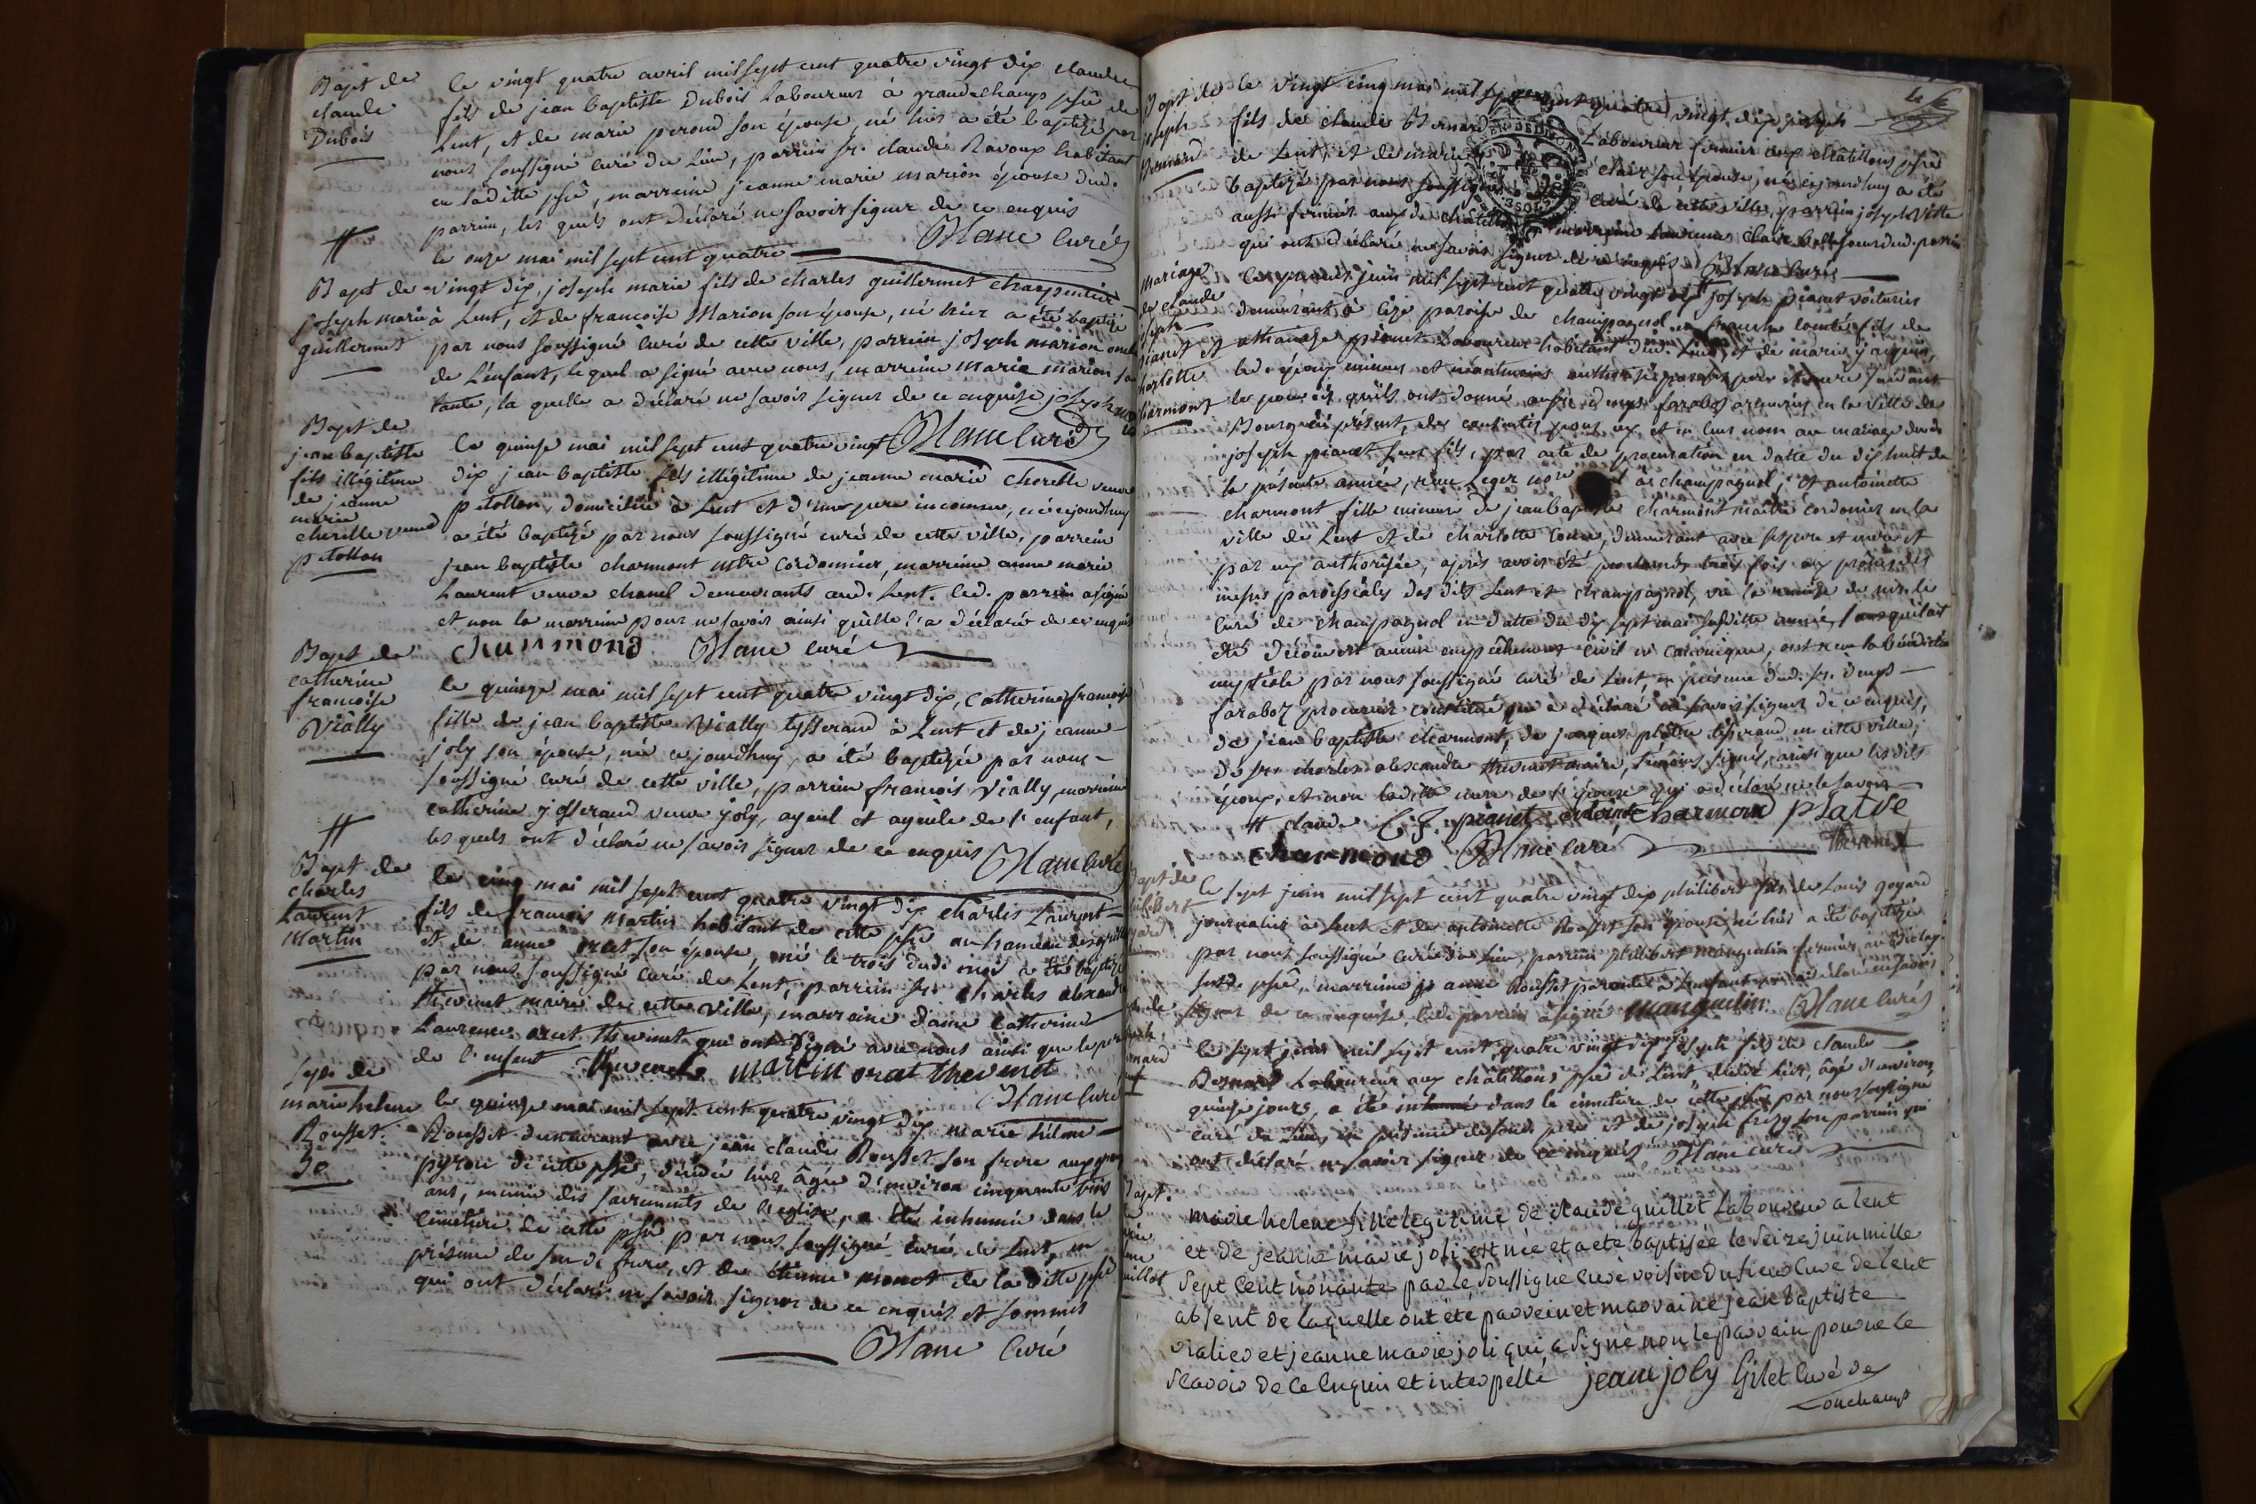 Bapt de
claude
Dubois
le vingt quatre avril mil sept cent quatre vingt dix claude
fils de jean baptiste Dubois Laboureur à grandchamp psse de
Lent, et de marie perond son épouse, né hier a été baptizé par
nous soussigné curé du lieu, parrein sr. claude Ravoux habitant
en laditte psse, marreine jeanne marie marion épouse dud.
parrein, les quels ont déclaré ne savoir signer de ce enquis
Blanc curé
Bapt de
joseph marie
guillermet
le onze mai mil sept cent quatre
vingt dix, joseph marie fils de charles guillermet charpentier
à Lent, et de francoise Marion son épouse, né hier a été baptizé
par nous soussigné curé de cette ville, parrein joseph marion oncle
de l'enfant, le quel a signé avec nous, marreine marie marion sa
tante, la quelle a déclaré ne savoir signer de ce enquise joseph
Blanc curé
Bapt de
jean baptiste
fils illégitime
de jeanne
marie
cherelle veuve
petollon
le quinze mai mil sept cent quatre vingt
dix jean baptiste fils illégitime de jeanne marie cherelle veuve
petollon, domiciliée à Lent et d'un pere inconnu, né cejourdhuy
a été baptizé par nous soussigné curé de cette ville, parrein
jean baptiste charmont mtre cordonnier, marreine anne marie
Laurent veuve chanel demeurants aud. Lent. led. parrein a signé
et non la marreine pour ne savoir ainsi qu'elle l'a déclaré de ce enquis
charmond Blanc curé
Bapt de
catherine
francoise
Vially
le quinze mai mil sept cent quatre vingt dix, catherine francoise
fille de jean baptiste Vially tisserand à Lent et de jeanne
joly son épouse, née cejourdhuy, a été baptizée par nous
soussigné curé de cette ville, parrein francois Vially, marreine
catherine josserand veuve joly, ayeul et ayeule de l'enfant,
les quels ont déclaré ne savoir signer de ce enquis Blanc curé
Bapt de
charles
Laurent
Martin
le cinq mai mil sept cent quatre vingt dix charles Laurent
fils de francois Martin habitant de cette psse au hameau des
et de anne orcet son épouse, né le trois dudi mois a été baptizé
par nous soussigné curé de Lent, parrein sr. charles alexandre
thevenet maire de cette ville, marraine dame catherine
Laurence orcet thevenet qui ont signé avec nous ainsi que le pere
de l'enfant Thevenet martin orcat thevenet
Blanc curé
Sep. de
marie helene
Rousset
le quinze mai mil sept cent quatre vingt dix marie helene
Rousset demeurant avec jean claude Rousset son frere aux
de cette psse, décédée hier âgée d'environ cinquante trois
ans, munie des sacrements de l'église, a été inhumée dans le
cimetiere de cette psse par nous soussigné curé de Lent, en
présence de sondi frere, et de étienne monet de laditte psse
qui ont déclaré ne savoir signer de ce enquis et sommés
Blanc Curé
Bapt de
joseph
Bernard
le vingt cinq mai mil sept cent quatre vingt dix joseph
fils de claude Bernard Laboureur fermier aux châtillons psse
de Lent, et de marie clair son épouse, né cejourdhuy a été
baptizé par nous soussigné curé de cette ville, parrein joseph
aussi fermier aux châtillons marreine claire belle soeur dud. parrein
qui ont déclaré ne savoir signer de ce enquis Blanc curé
mariage
de claude
joseph
pianet et
charlotte
charmont
Le premier juin mil sept cent quatre vingt dix joseph pianet voiturier
demeurant à cize paroisse de champagnol en franche comté, fils de
athanase pianet Laboureur habitant dud. lieu, et de marie
led. époux mineur et néantmoins authorisé par ses pere et mere suivant
le pouvoir qu'ils ont donné au sr. denys faraboz en la ville de
Bourg ici présent, de consentir pour eux et en leur nom au mariage dud.
joseph pianet leur fils, par acte de procuration en datte du dix huit de
la présente année, reçu Leger à champagnol, et antoinette
charmont fille mineure de jean baptiste charmont maitre cordonnier en la
ville de Lent et de charlotte demeurant avec ses pere et mere et
par eux authorisée, après avoir été proclamés trois fois aux prônes des
messes paroissiales desdits Lent et champagnol, vu la remise de mr. le
curé de champagnol en datte du dix sept mai susditte année, sans qu'il ait
été découvert aucun empêchement civil ni canonique, ont recu la bénédiction
nuptiale par nous soussigné curé de Lent, en présence dud. sr. denys
faraboz procureur constitué qui a déclaré ne savoir signer de ce enquis,
de jean baptiste charmont, de jacques platre tisserand en cette ville,
de sr. charles alexandre thevenet maire, témoins signés, ainsi que lesdits
époux, et non laditte mere de l'épouse qui a déclaré ne le savoir
claude C. J. pianet antoinette charmond platre
charmond Blanc curé Thevenet
le sept juin mil sept cent quatre vingt dix philibert fils de Louis goyard
journalier à Lent et de antoinette Rousset son épouse, né hier a été baptizé
par nous soussigné curé du lieu, parrein philibert manguelin fermier au
sudite psse, marreine anne Rousset parente à l'enfant
signer de ce enquise, led. parrein a signé manguelin Blanc curé
le sept juin mil sept cent quatre vingt dix joseph fils de claude
Bernard Laboureur aux châtillons psse de Lent, décédé hier, âgé d'environ
quinze jours, a été inhumé dans le cimetiere de cette par nous soussigné
curé du lieu, en présence de sondi pere et de joseph son parrein qui
ont déclaré ne savoir signer de ce enquis Blanc curé
Bapt.
marie helene fille legitime de claude guillot Laboureur a lent
et de jeanne marie joli est née et a eté baptisée le seize juin mille
sept cent nonante par le soussigné curé voisin du sieur curé de lent
absent de laquelle ont eté parrein et marraine jean baptiste
vialier et jeanne marie joli qui a signé non le parrain pour ne le
scavoir de ce enquis et interpellé jeane joly Gilet curé de
Lonchamp